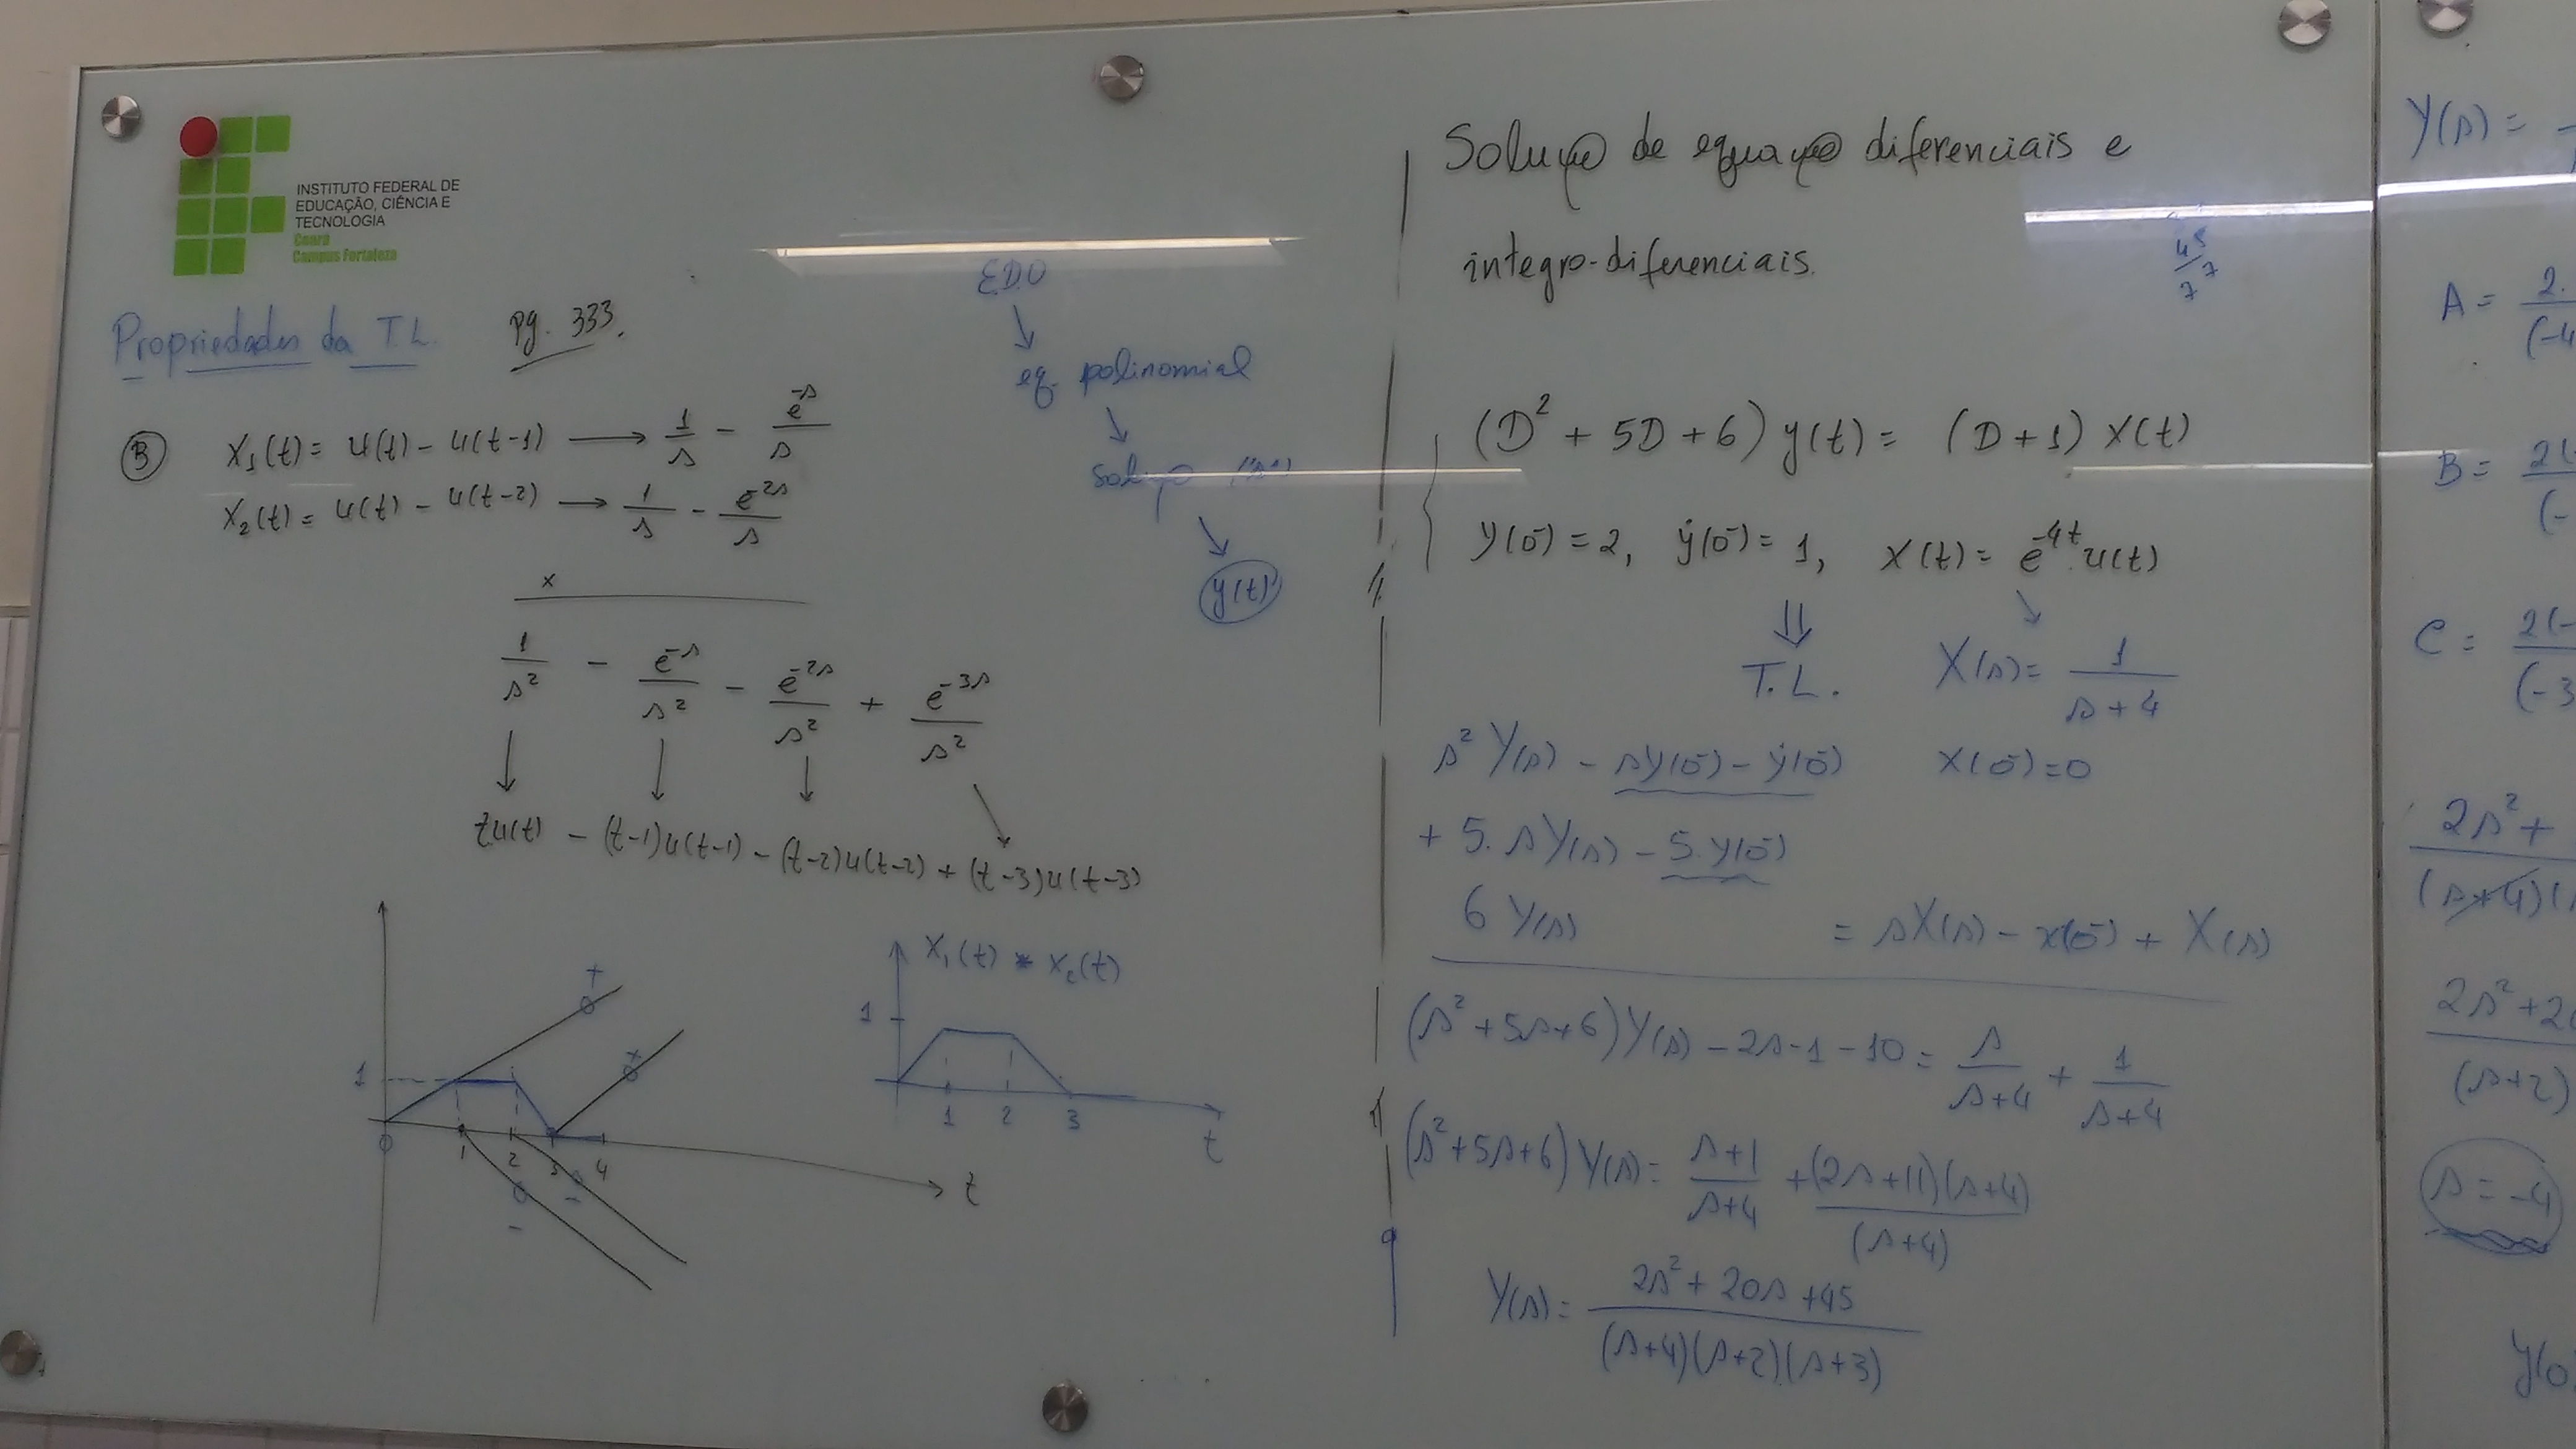 INSTITUTO FEDERAL DE
EDUCAÇÃO, CIÊNCIA E
TECNOLOGIA
Ceará
Campus Fortaleza
Propriedades da T.L. pg. 333.
B
x₁(t) = u(t) - u(t-1) → 1/s - e^-s/s
x₂(t) = u(t) - u(t-2) → 1/s - e^-2s/s
x
1/s² - e^-s/s² - e^-2s/s² + e^-3s/s²
↓ ↓ ↓ ↘
tu(t) - (t-1)u(t-1) - (t-2)u(t-2) + (t-3)u(t-3)
+
+
1
0 1 2 3 4
-
-
t
x₁(t) * x₂(t)
1
1 2 3
t
EDO
↘
eq. polinomial
↘
↘
y(t)
Solução de equação diferenciais e
integro-diferenciais.
45/7
7
(D² + 5D + 6) y(t) = (D+1) x(t)
y(0⁻) = 2, ẏ(0⁻) = 1, x(t) = e^-4t u(t)
⇓ ↘
T.L. X(s) = 1/(s+4)
s² Y(s) - sy(0⁻) - ẏ(0⁻) x(0⁻) = 0
+ 5. sY(s) - 5.y(0⁻)
6 Y(s) = sX(s) - x(0⁻) + X(s)
(s² + 5s + 6) Y(s) - 2s - 1 - 10 = s/(s+4) + 1/(s+4)
(s² + 5s + 6) Y(s) = (s+1)/(s+4) + (2s+11)(s+4)/(s+4)
Y(s) = (2s² + 20s + 45)/((s+4)(s+2)(s+3))
Y(s) =
A = 2./(-4
B = 2(-/(-
C = 2(-/(-3
2s² +/(s+4)(
2s² + 2/(s+2)
s = -4
y(0